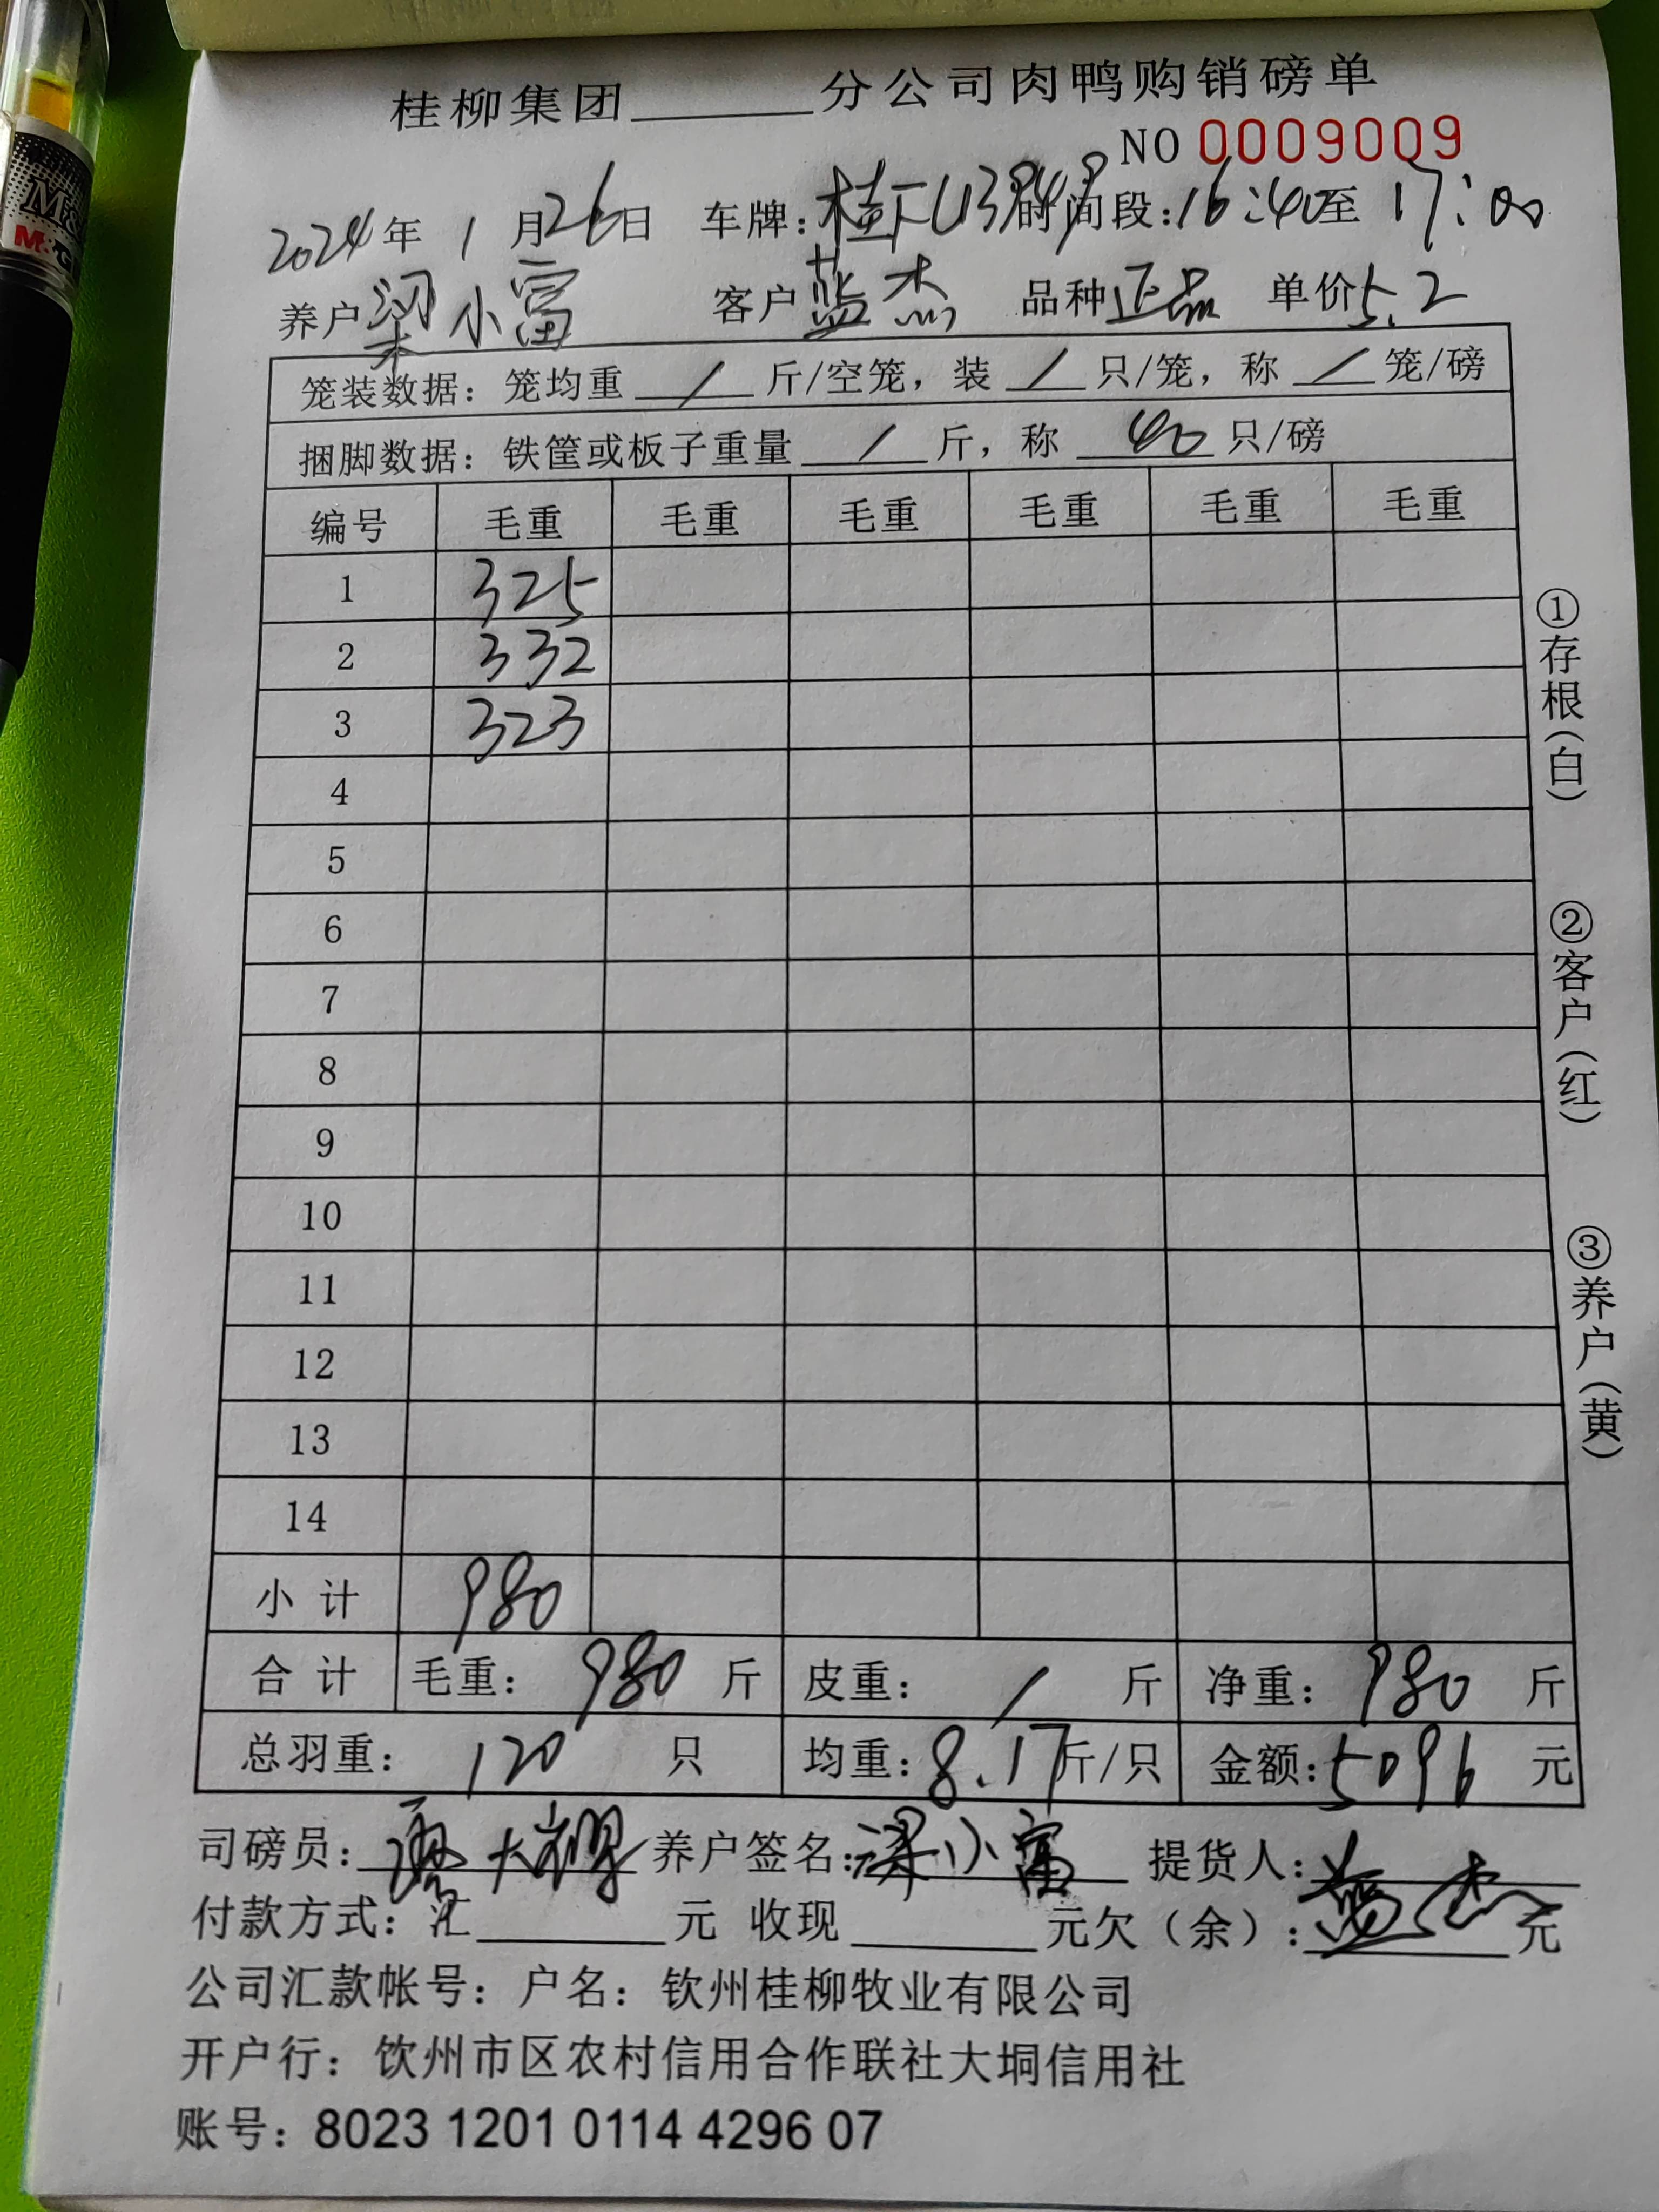 桂柳集团______分公司肉鸭购销磅单
NO 0009009
2024年 1 月26日 车牌: 时间段:16:40至 17:00
养户 梁小富 客户 蓝杰 品种 正品 单价 5.2
笼装数据: 笼均重 / 斤/空笼, 装 / 只/笼, 称 / 笼/磅
捆脚数据: 铁筐或板子重量 / 斤, 称 40 只/磅
编号 毛重 毛重 毛重 毛重 毛重 毛重
1 325
2 332
3 323
4
5
6
7
8
9
10
11
12
13
14
小计 980
合计 毛重: 980 斤 皮重: / 斤 净重: 980 斤
总羽重: 120 只 均重: 8.17斤/只 金额: 5096 元
司磅员: 养户签名: 梁小富 提货人: 蓝杰
付款方式: 汇______元 收现______元欠(余):______元
公司汇款帐号: 户名: 钦州桂柳牧业有限公司
开户行: 饮州市区农村信用合作联社大垌信用社
账号: 8023 1201 0114 4296 07
①存根(白)
②客户(红)
③养户(黄)
M&G